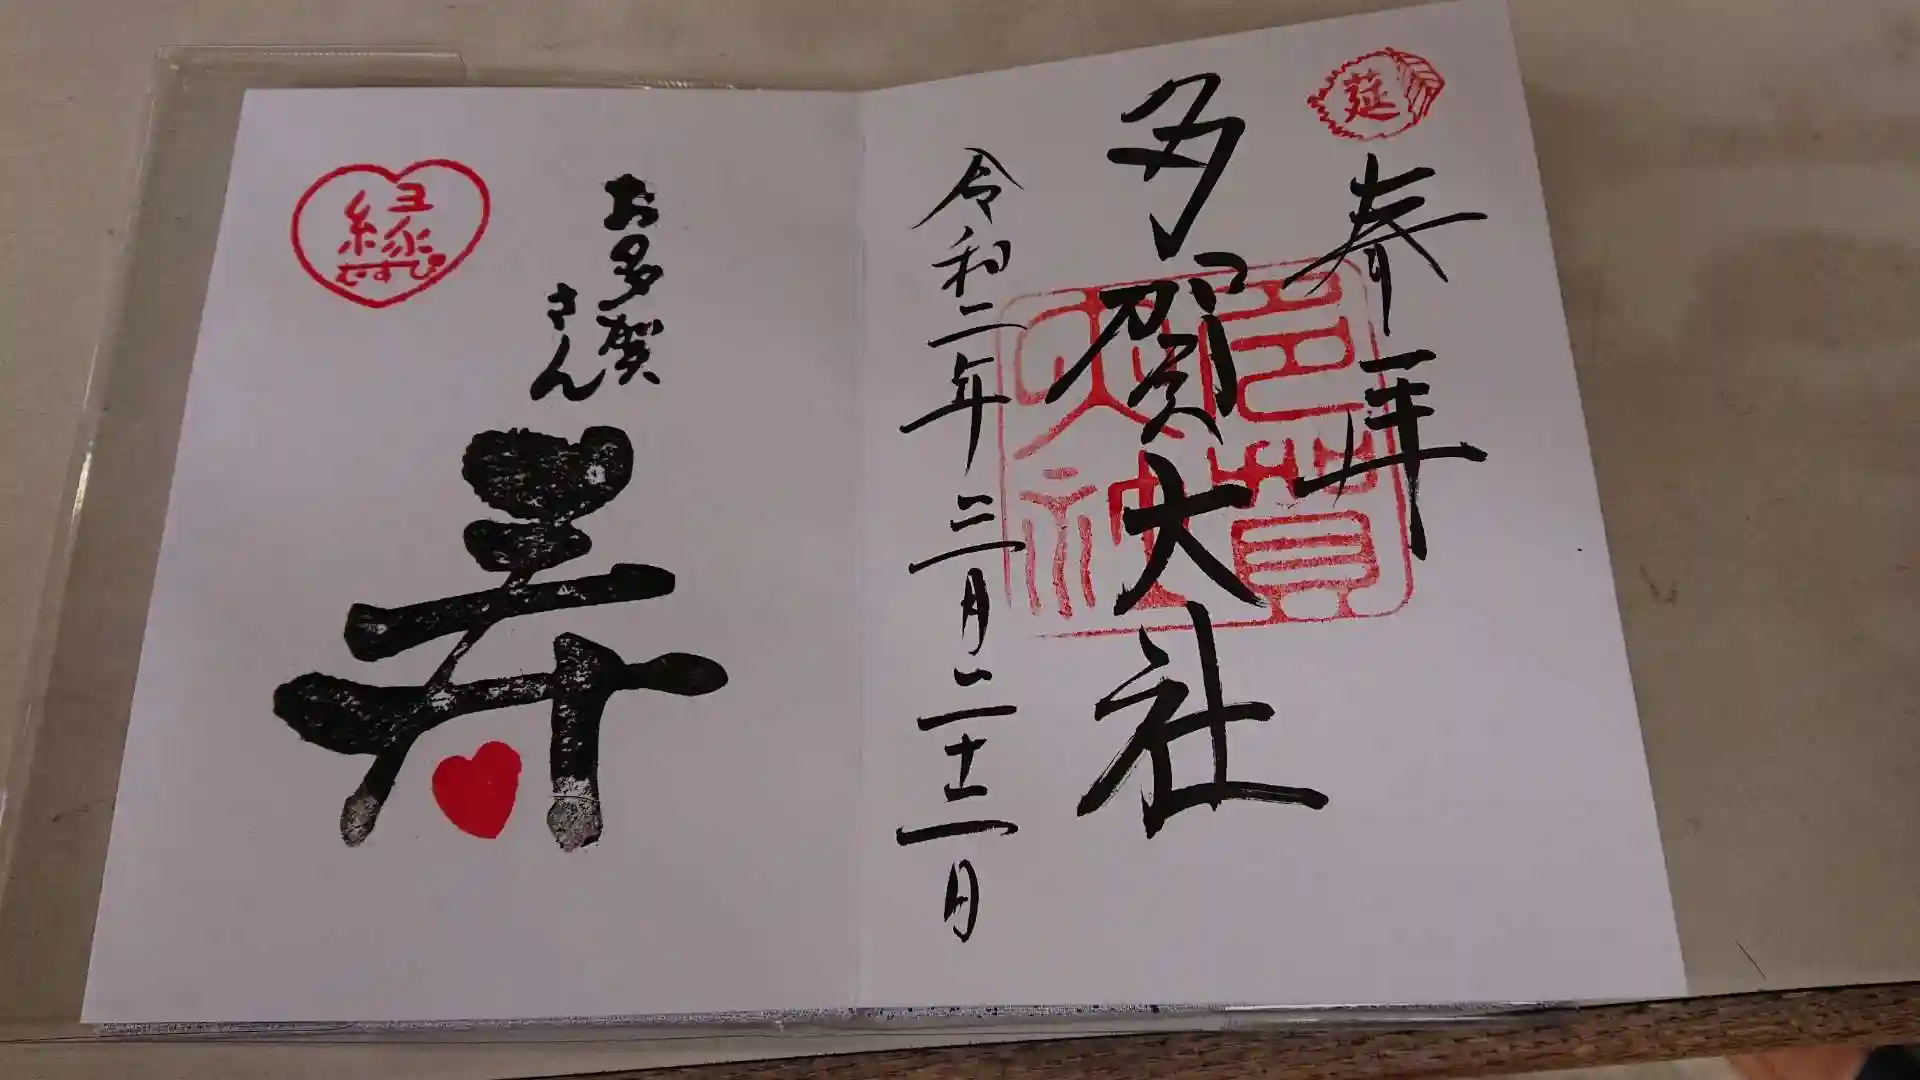 莚
奉拝
多賀大社
令和二年二月二十一日
お多賀
さん
寿
縁
むすび